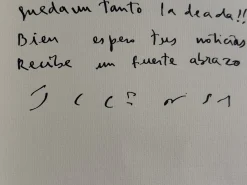 queda un tanto ladeada!!
Bien espero tus noticias
Recibe un fuerte abrazo